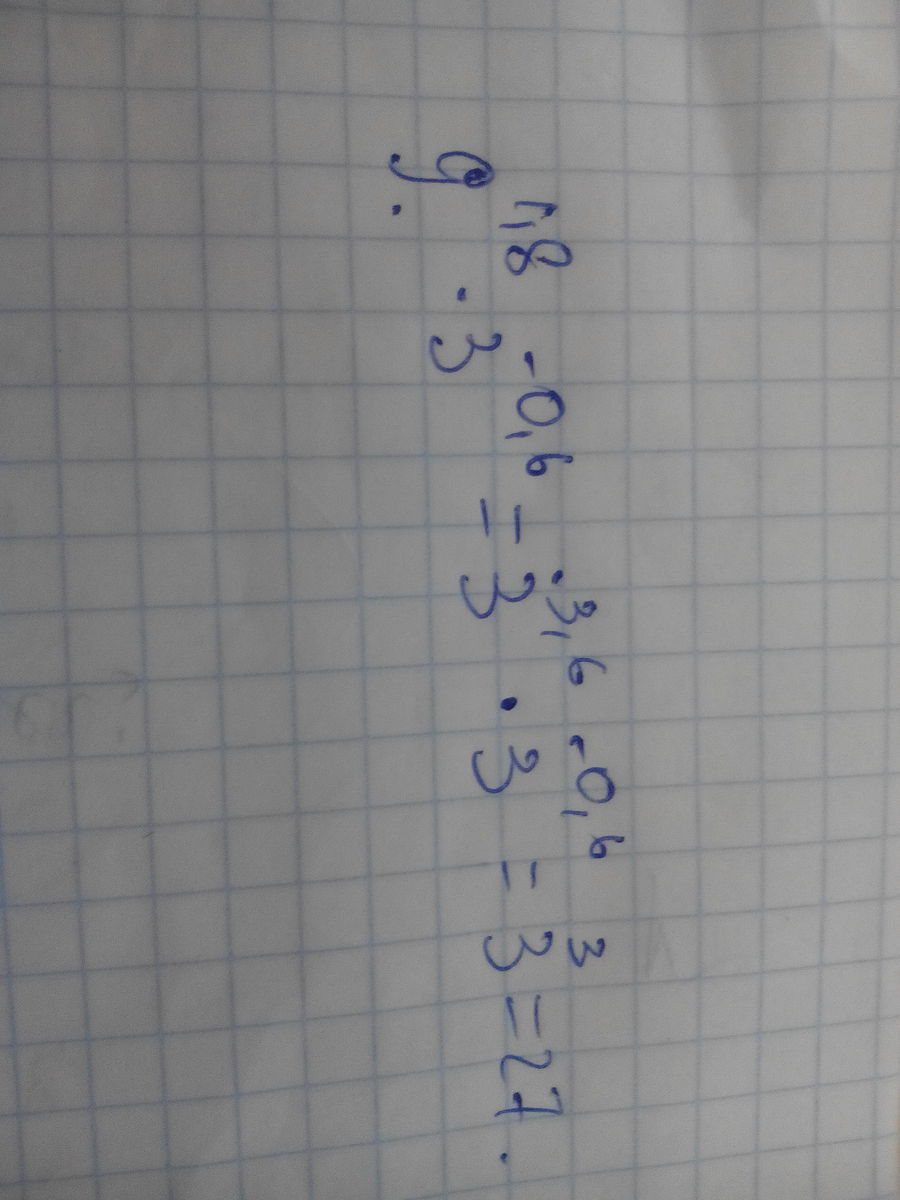 9^{1,8} · 3^{-0,6} = 3^{3,6} · 3^{-0,6} = 3^3 = 27.